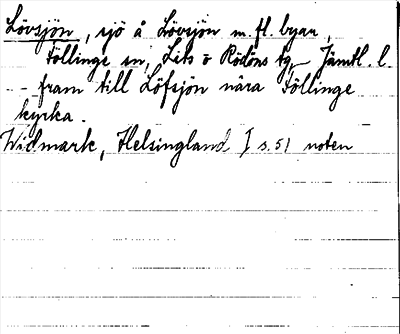 Lövsjön, sjö å Lövsjön m. fl. byar,
Föllinge sn, Lits o Rödöns tg, Jämtl. l.
-- fram till Löfsjön nära Föllinge
kyrka.
Widmark, Helsingland I s. 51 noten